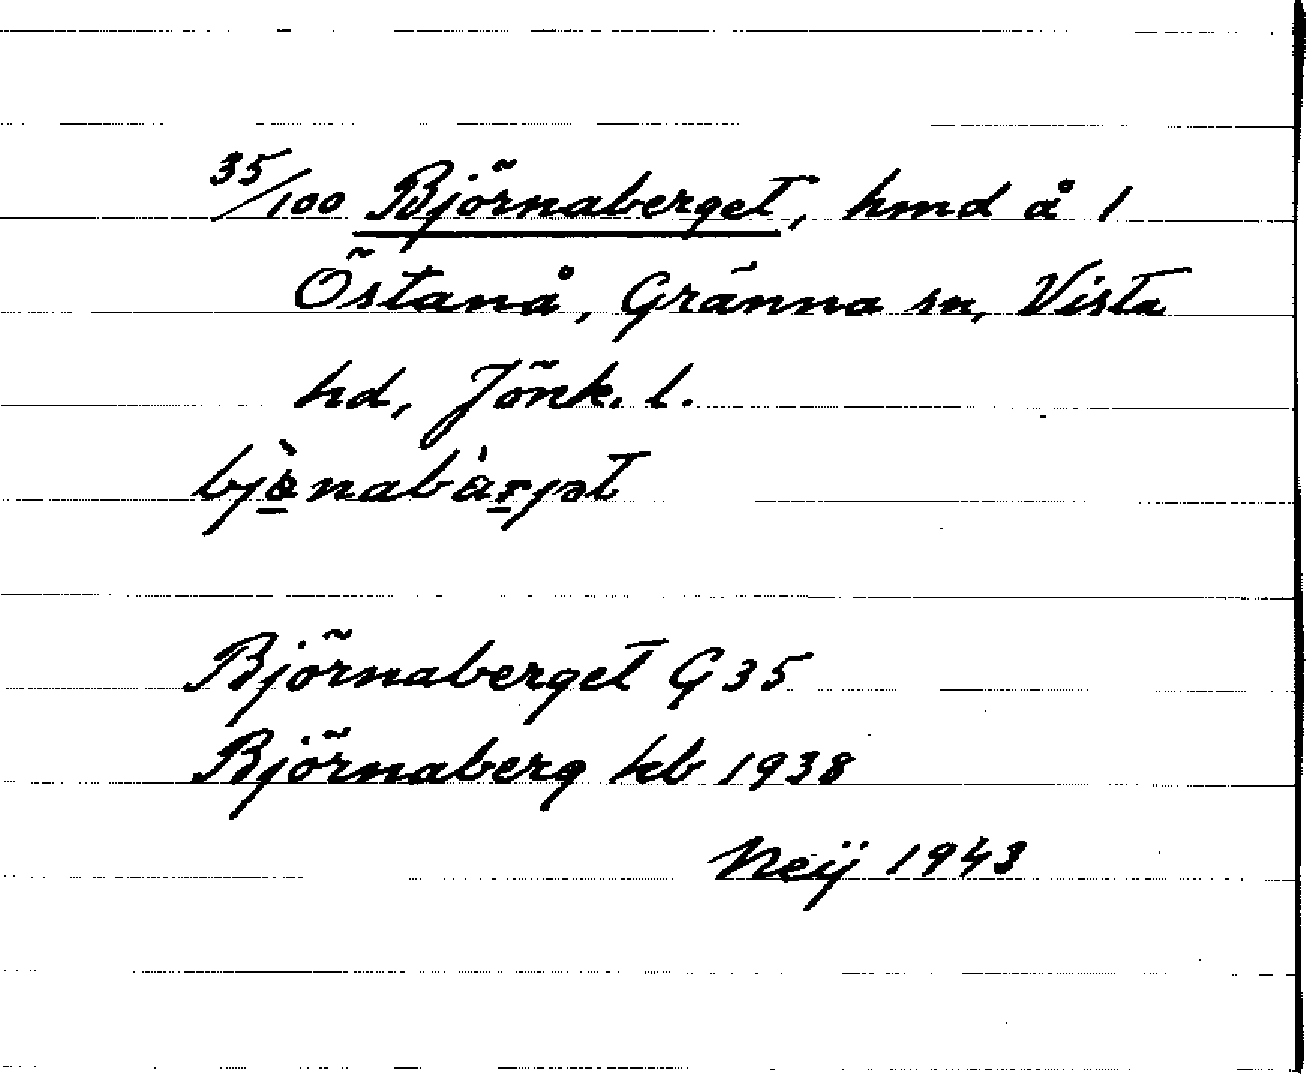 35/100 Björnaberget, hmd å 1
Östanå, Gränna sn, Vista
hd, Jönk. l.
Björnaberget G35
Björnaberg kb 1938
Neij 1943